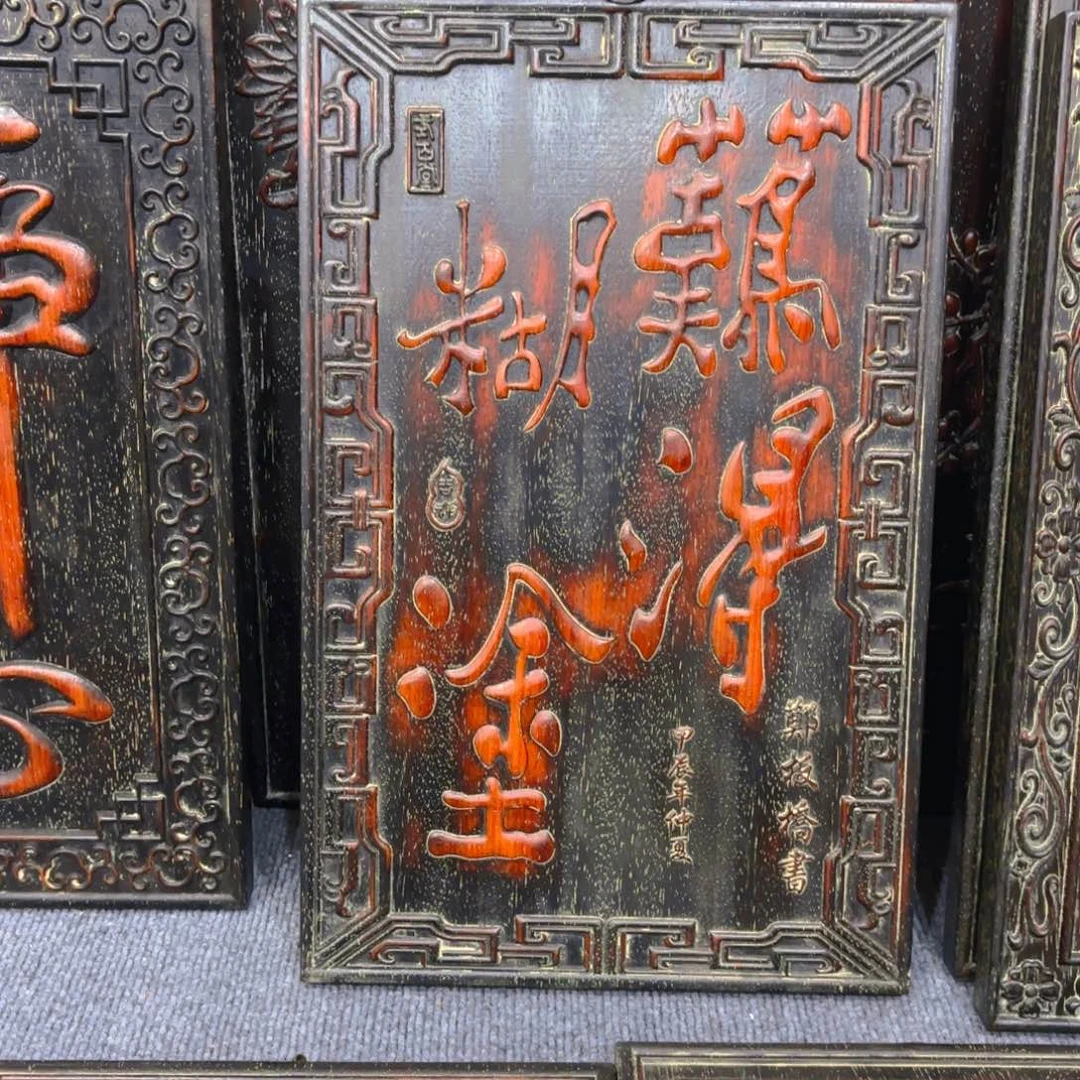 難得
糊塗
鄭板橋書
甲辰年仲夏